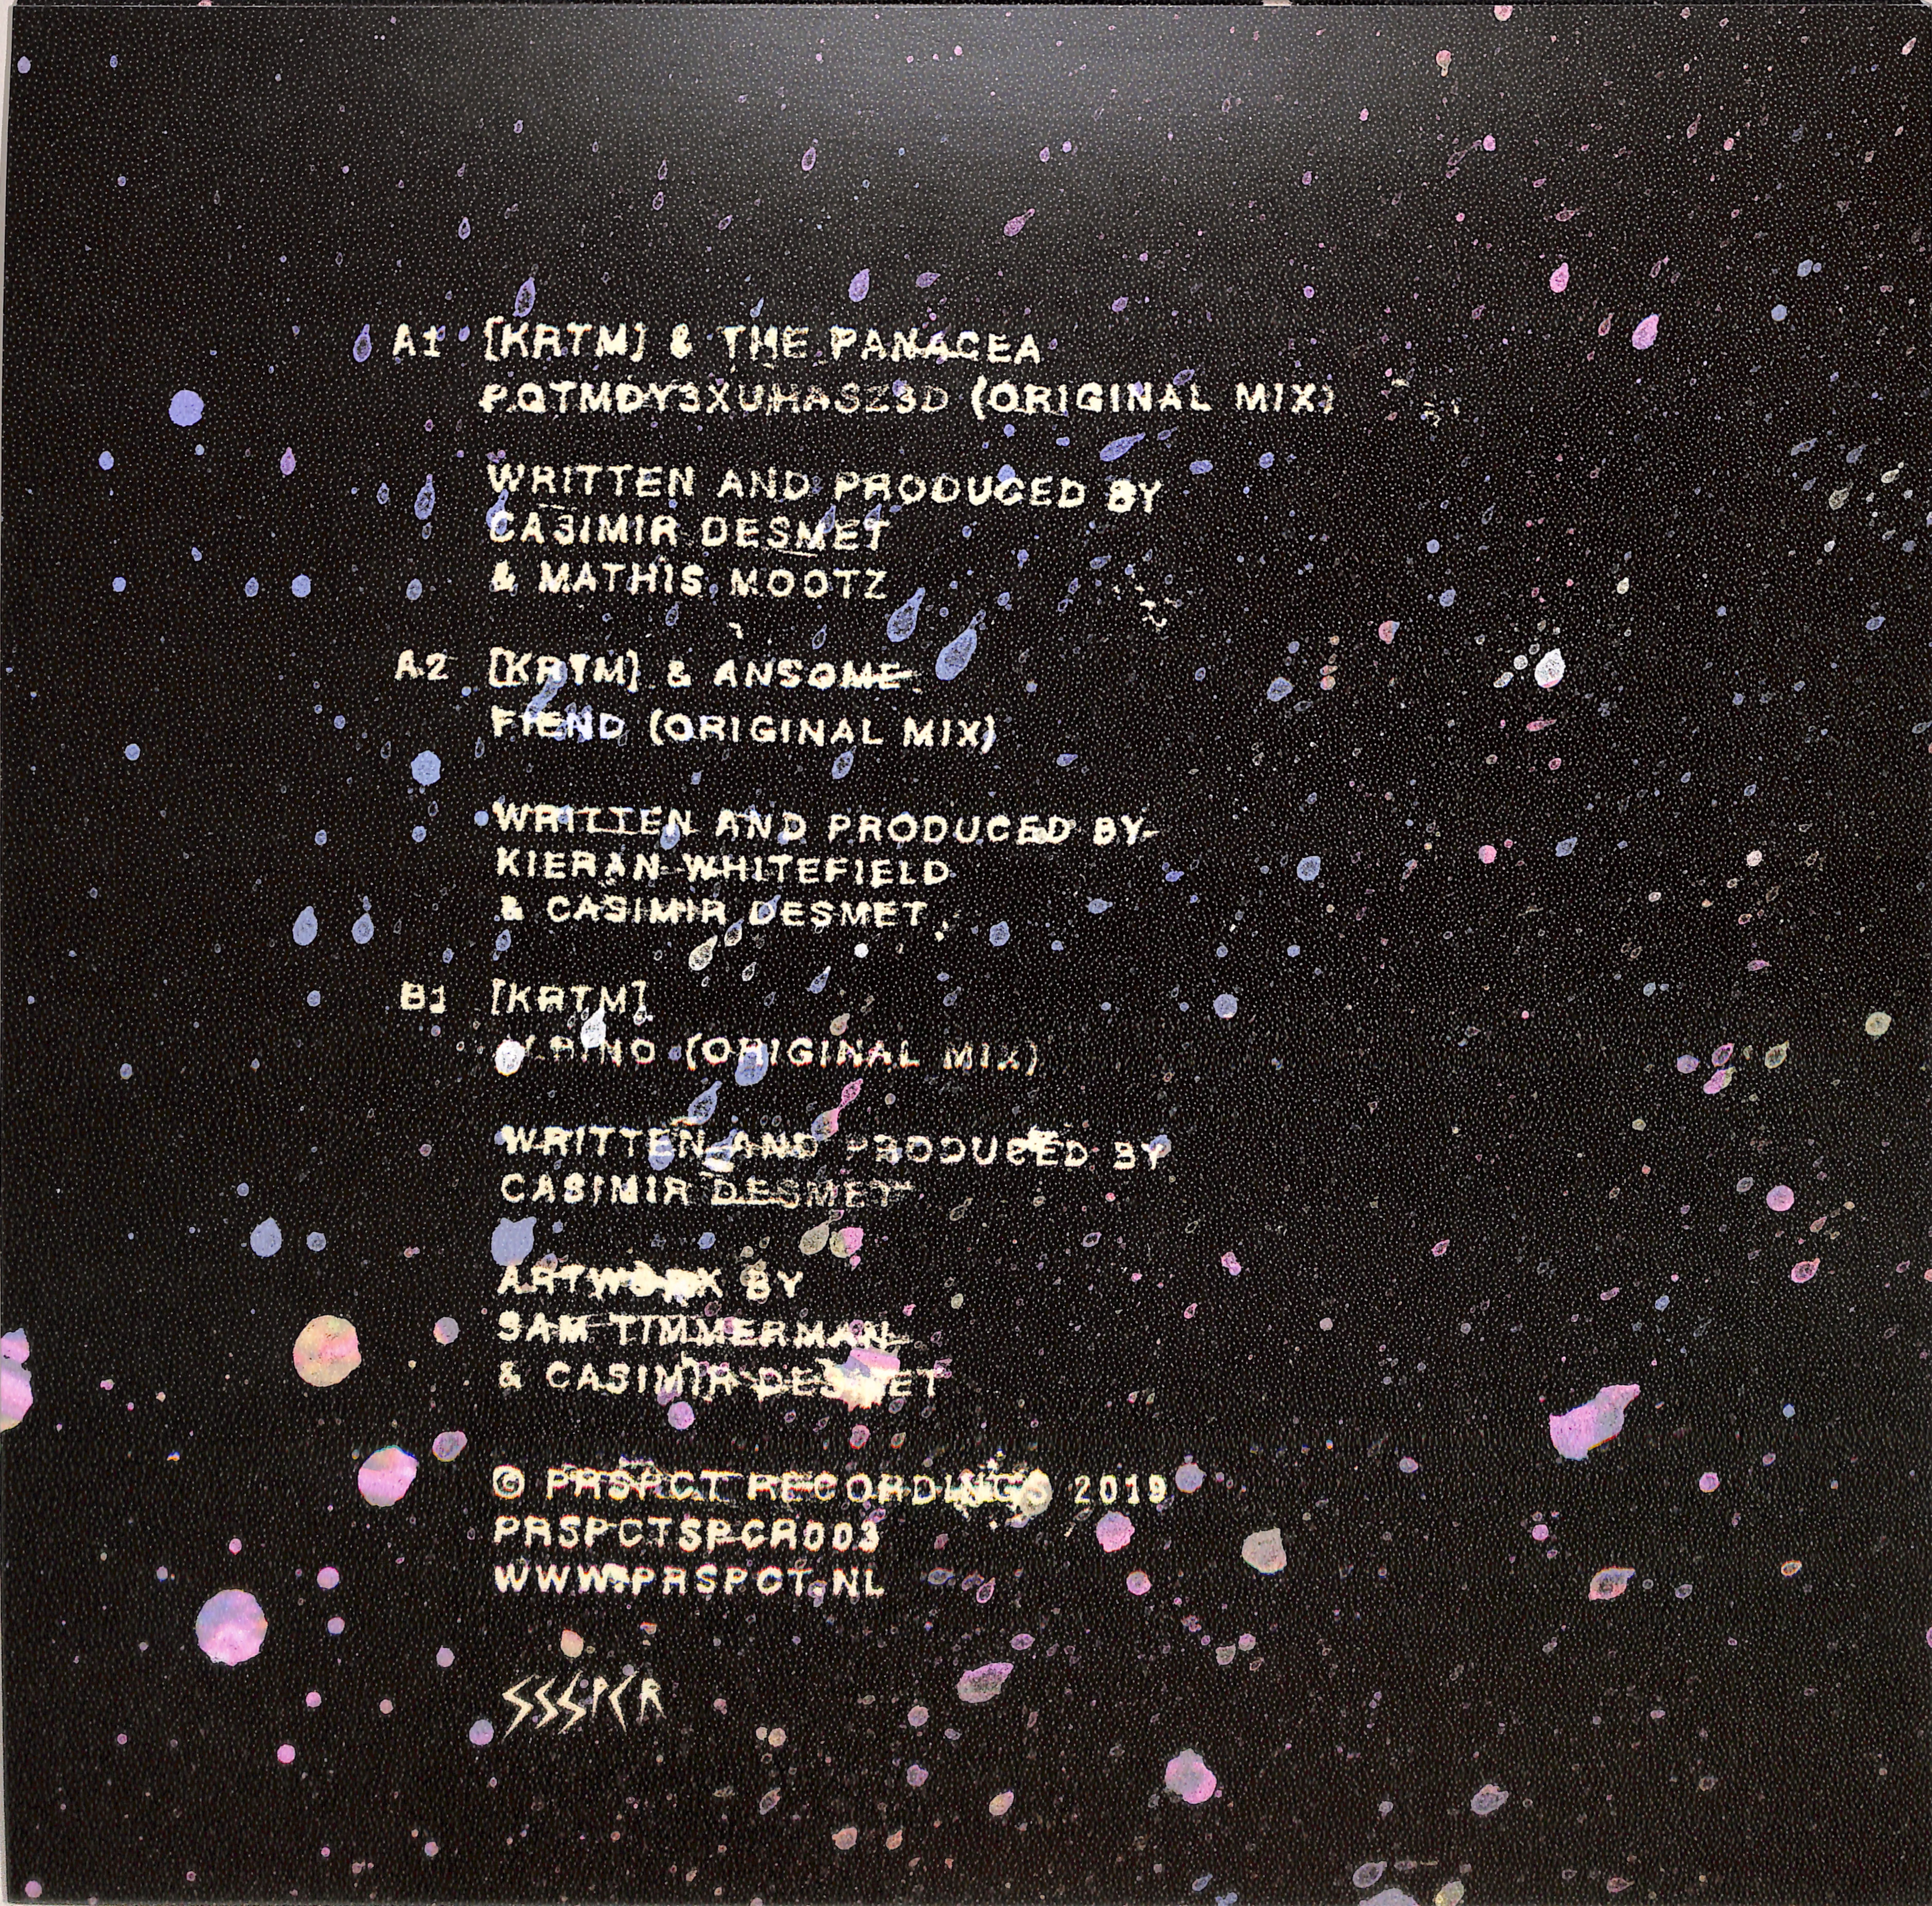 A1 [KRTM] & THE PANACEA
PQTMDY3XUHASZ3D (ORIGINAL MIX)
WRITTEN AND PRODUCED BY
CASIMIR DESMET
& MATHIS MOOTZ
A2 [KRTM] & ANSOME
FIEND (ORIGINAL MIX)
WRITTEN AND PRODUCED BY
KIERAN WHITEFIELD
& CASIMIR DESMET
B1 [KRTM]
(ORIGINAL MIX)
WRITTEN AND PRODUCED BY
CASIMIR DESMET
ARTWORK BY
SAM TIMMERMAN
& CASIMIR DESMET
© PRSPCT RECORDINGS 2019
PRSPCTSPCR003
WWW.PRSPCT.NL
SSSPCR